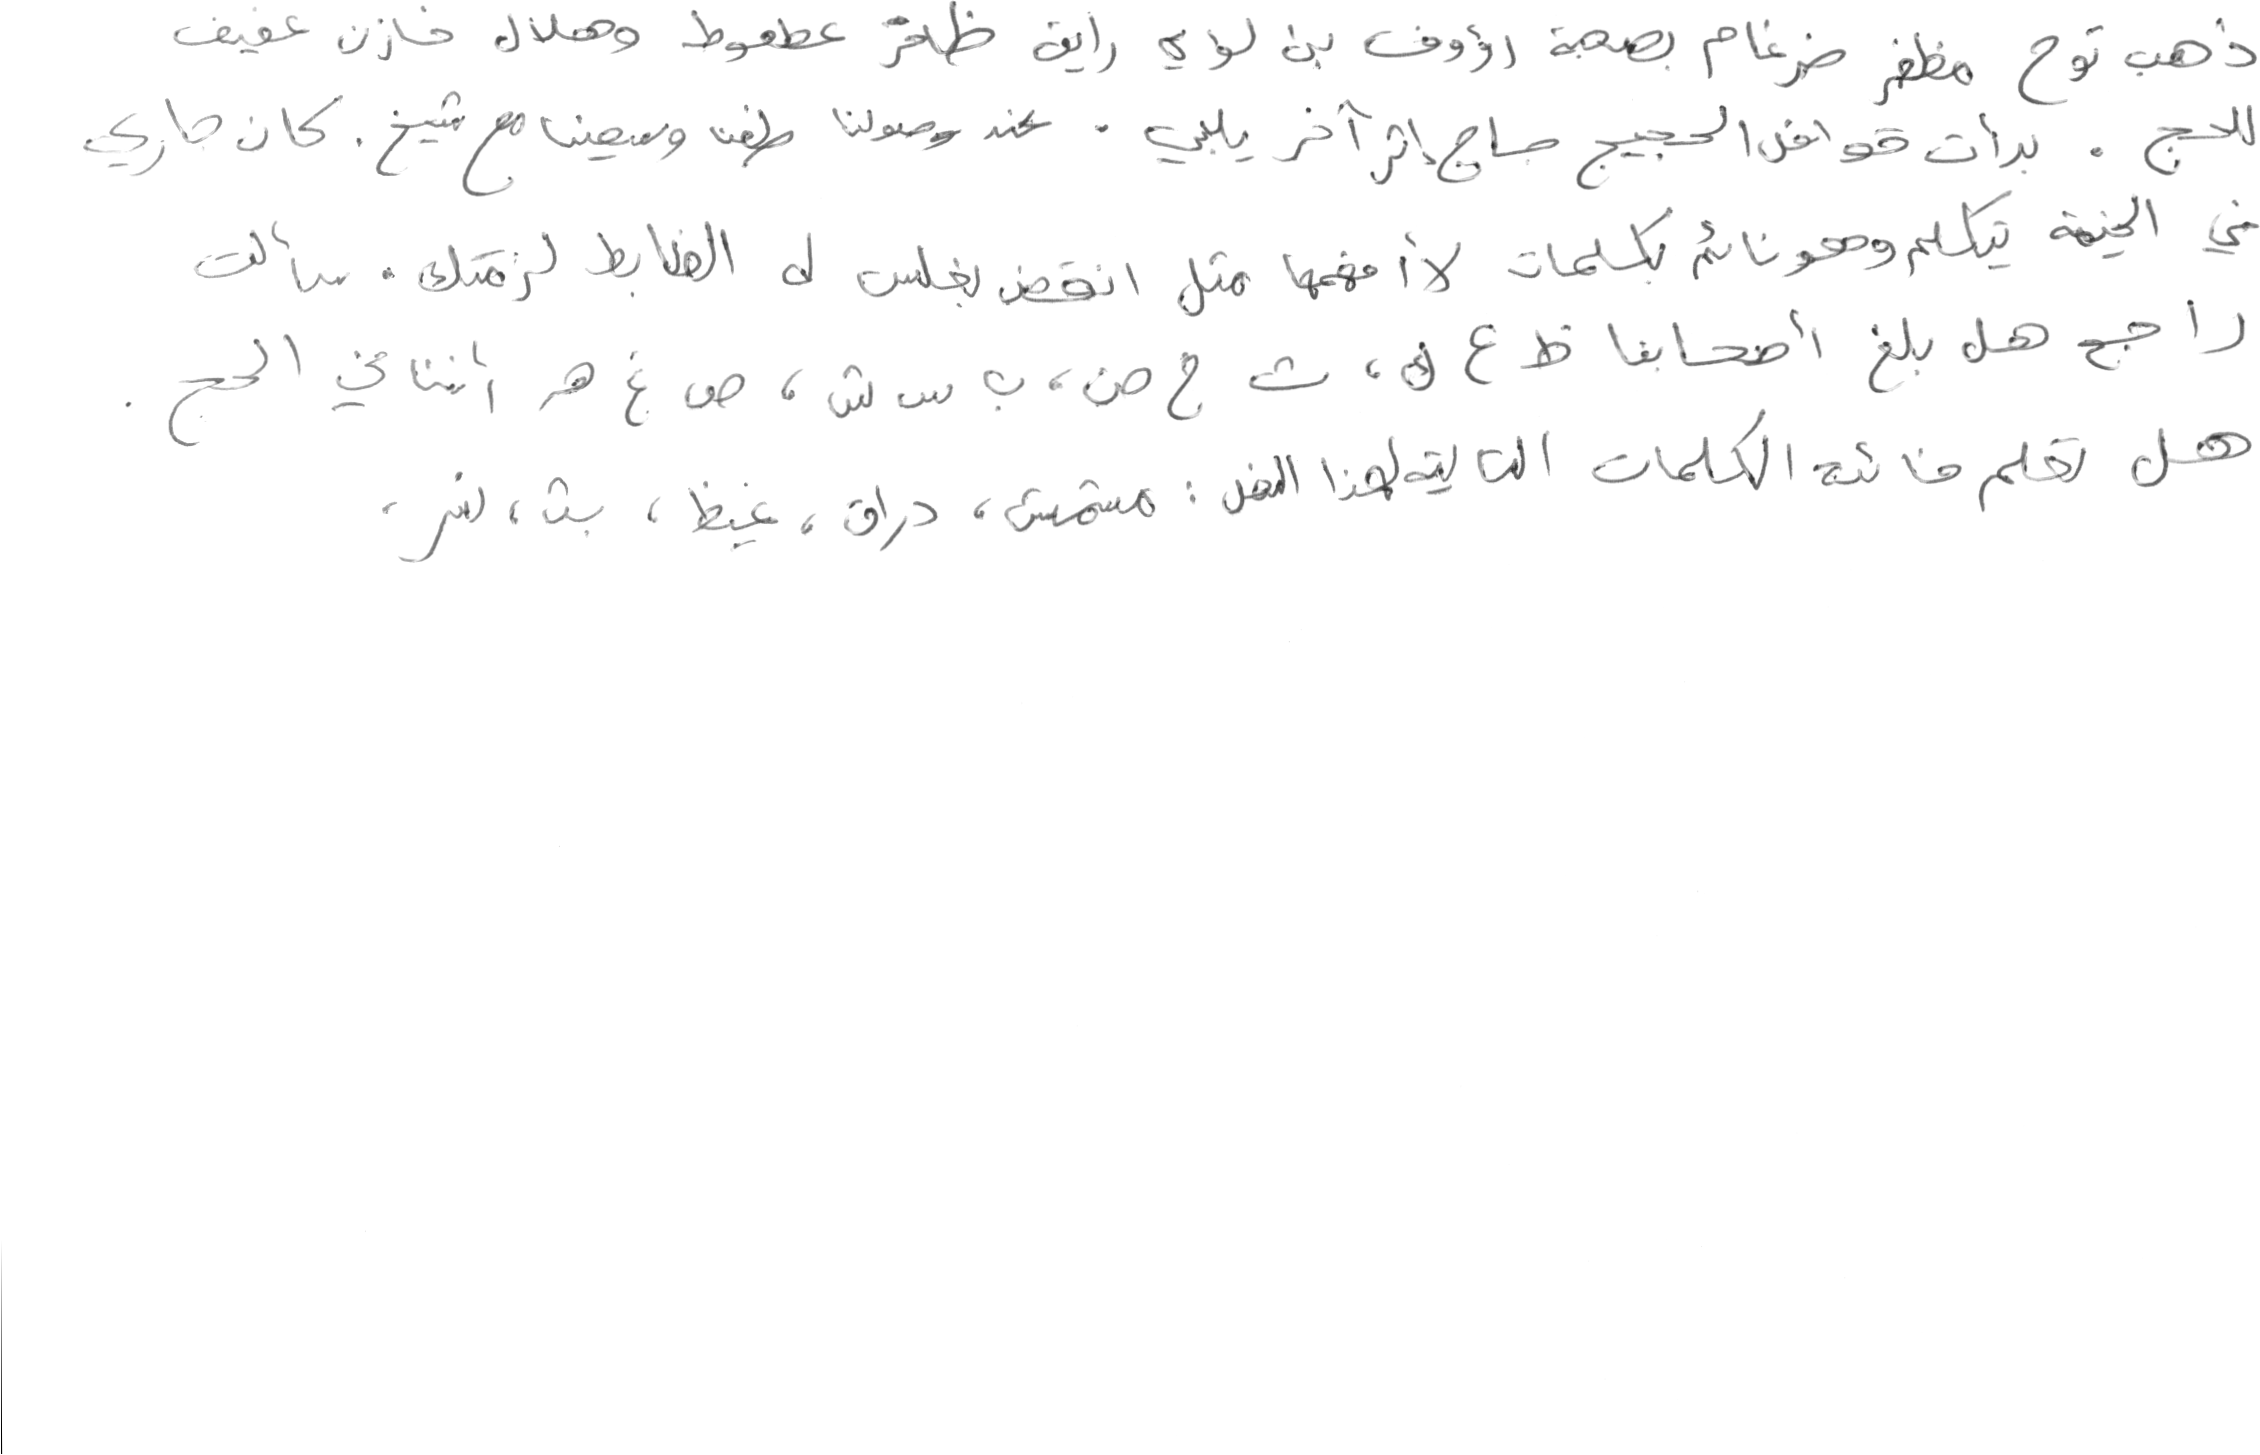 ذهب نوح مظفر ضرغام بصحبة رؤوف بن لؤي رايق ظافر عطعوط وهلال خازن عفيف
للحج . بدأت قوافل الحجيج حاج إثر آخر يلبي . عند وصولنا طفنا وسعينا مع شيخ . كان جاري
في الخيمة يتكلم وهو نائم بكلمات لا أفهمها مثل انقض بغلس له الضابط لزمتك . سألت
راجح هل بلغ أصحابنا ظ ع ك ، ث خ ض ، ب س ش ، ص غ هـ أننا في الحج .
هل تعلم فائدة الكلمات التالية لهذا النص : مشمش ، دراق ، غيظ ، بث ، نثر ،